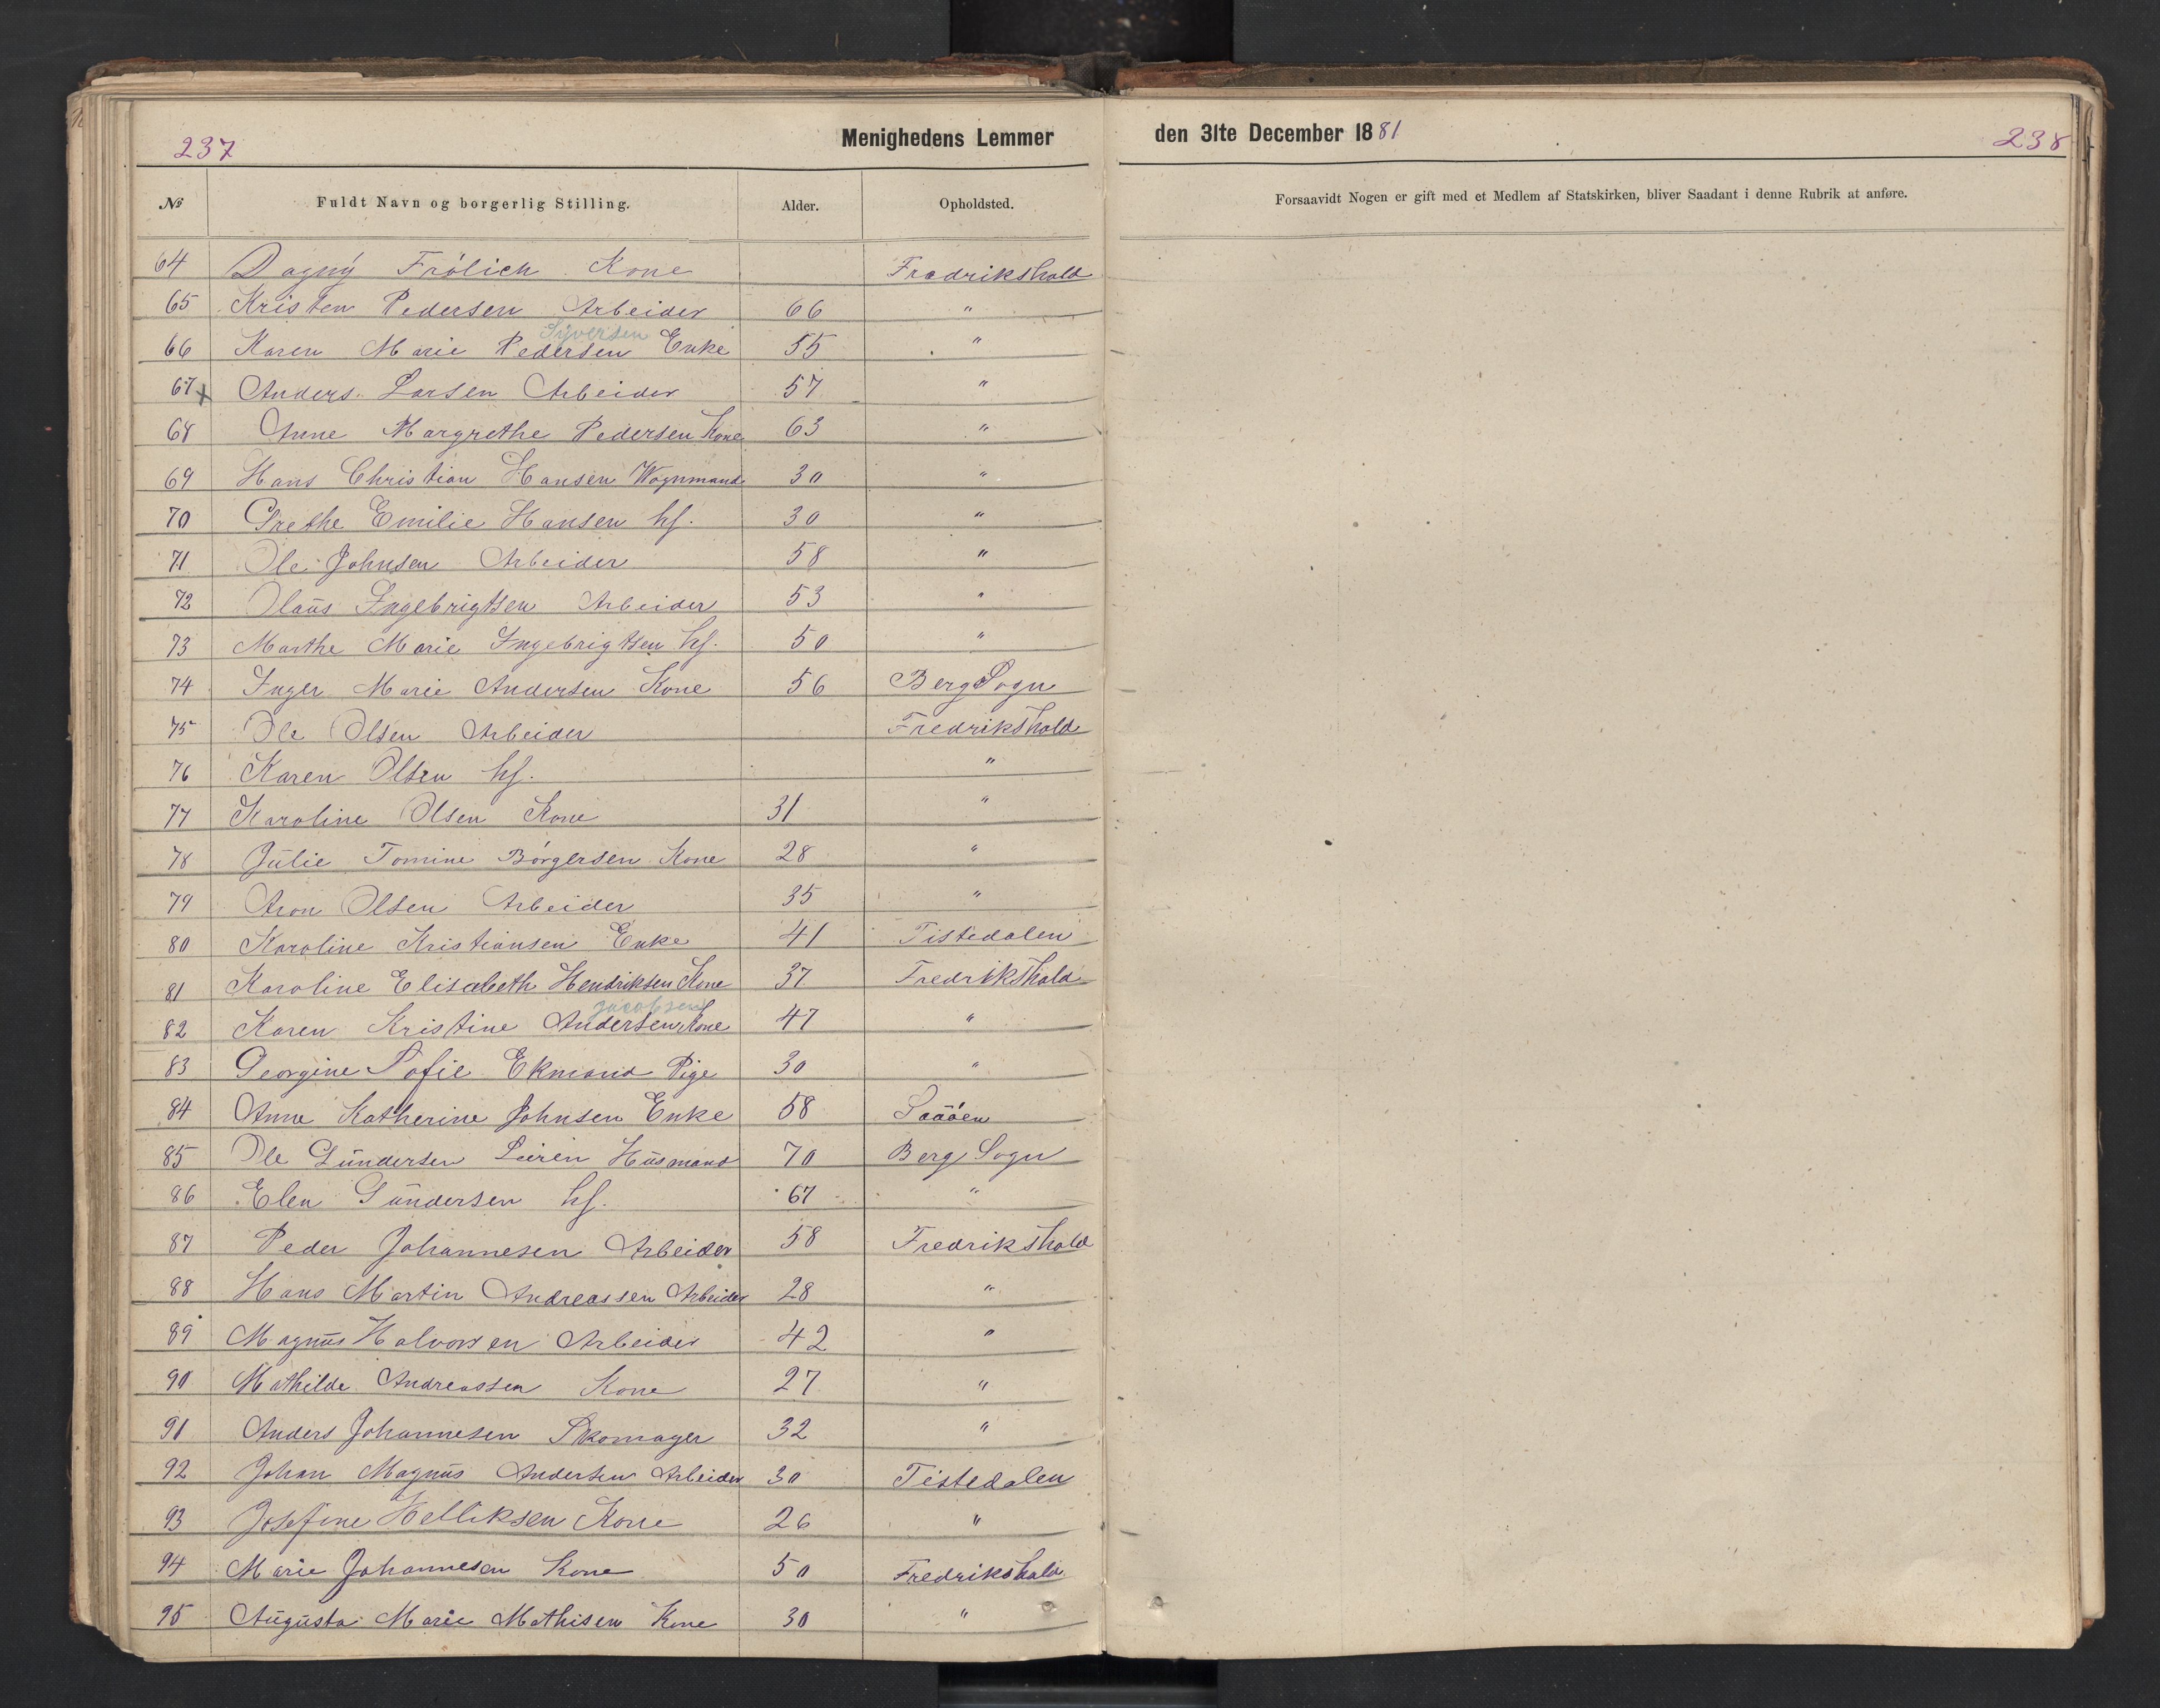 237 Menighedens Lemmer den 31te December 1881 238
№ Fuldt Navn og borgerlig Stilling. Alder. Opholdsted. Forsaavidt Nogen er gift med et Medlem af Statskirken, bliver Saadant i denne Rubrik at anføre.
64 Dagny Frölich Kone Fredrikshald
65 Kristen Pedersen Arbeider 66 "
Syversen
66 Karen Marie Pedersen Enke 55 "
67 x Anders Larsen Arbeider 57 "
68 Anne Margrethe Pedersen Kone 63 "
69 Hans Christian Hansen Vognmand 30 "
70 Grethe Emilie Hansen hf. 30 "
71 Ole Johnsen Arbeider 58 "
72 Olaus Ingebrigtsen Arbeider 53 "
73 Marthe Marie Ingebrigtsen hf. 50 "
74 Inger Marie Andersen Kone 56 Berg Sogn
75 Ole Olsen Arbeider Fredrikshald
76 Karen Olsen hf. "
77 Karoline Olsen Kone 31 "
78 Julie Tomine Börgersen Kone 28 "
79 Aron Olsen Arbeider 35 "
80 Karoline Kristiansen Enke 41 Tistedalen
81 Karoline Elisabeth Hendriksen Kone 37 Fredrikshald
Jacobsen
82 Karen Kristine Andersen Kone 47 "
83 Georgine Sofie Ekmand Pige 30 "
84 Anne Katherine Johnsen Enke 58
85 Ole Gundersen Leiren Husmand 70 Berg Sogn
86 Elen Gundersen hf. 67 "
87 Peder Johannesen Arbeider 58 Fredrikshald
88 Hans Martin Andreassen Arbeider 28 "
89 Magnus Halvorsen Arbeider 42 "
90 Mathilde Andreassen Kone 27 "
91 Anders Johannesen Skomager 32 "
92 Johan Magnus Andersen Arbeider 30 Tistedalen
93 Josefine Helliksen Kone 26 "
94 Marie Johannesen Kone 50 Fredrikshald
95 Augusta Marie Mathisen Kone 30 "